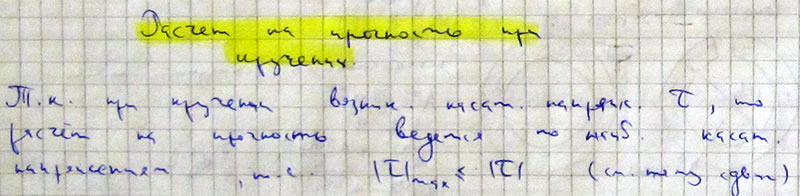 Расчет на прочность при
кручении.
Т.к. при кручении возник. касат. напряж. τ, то
расчёт на прочность ведется по наиб. касат.
напряжениям, т.е. |τ|max ≤ |τ| (см. тему сдвиг)